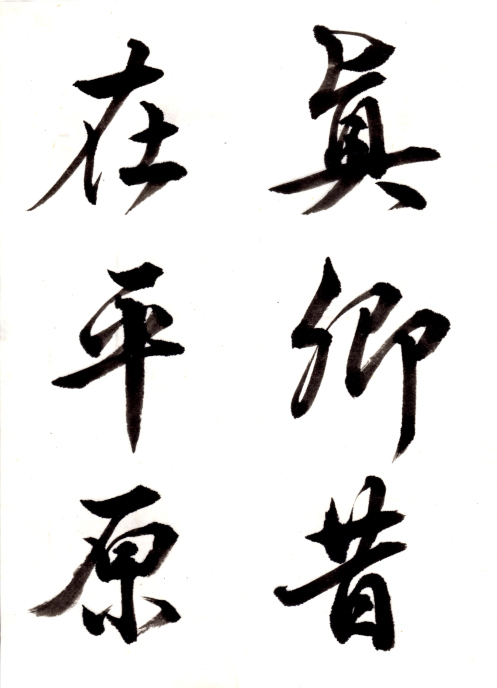 眞卿昔
在平原